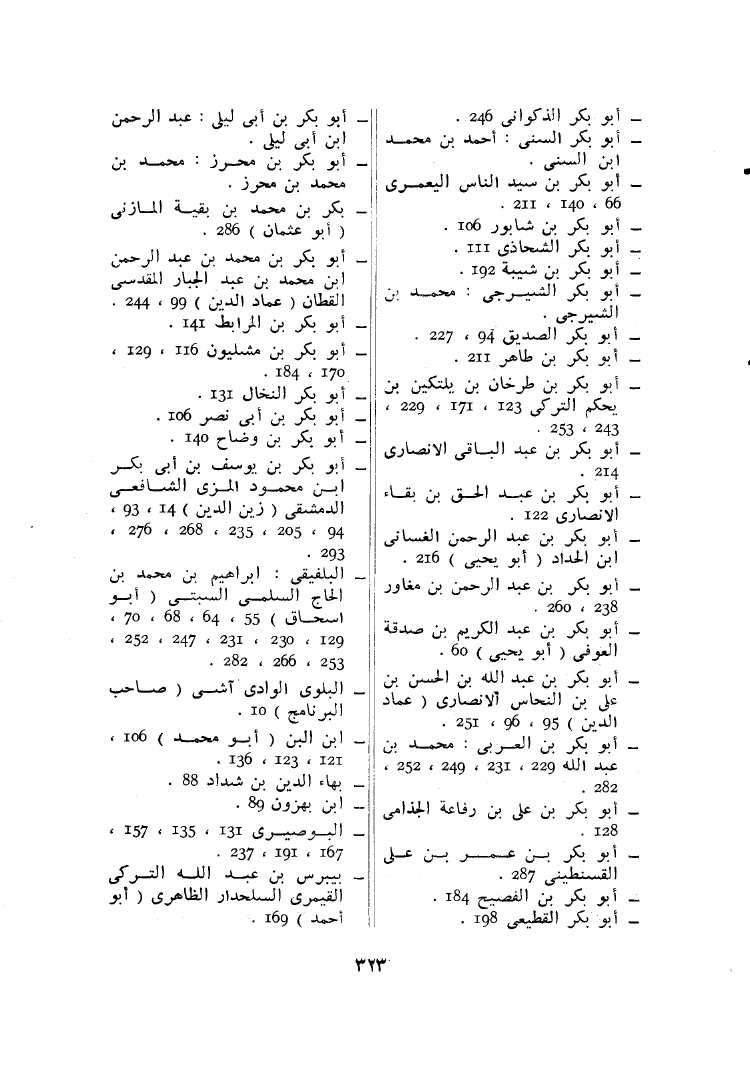 – أبو بكر الذكوانى 246 .
– أبو بكر السنى : أحمد بن محمد
ابن السنى .
– أبو بكر بن سيد الناس اليعمرى
66 ، 140 ، 211 .
– أبو بكر بن شابور 106 .
– أبو بكر الشحاذى 111 .
– أبو بكر بن شيبة 192 .
– أبو بكر الشيرجى : محمد بن
الشيرجى .
– أبو بكر الصديق 94 ، 227 .
– أبو بكر بن طاهر 211 .
– أبو بكر بن طرخان بن يلتكين بن
يحكم التركى 123 ، 171 ، 229 ،
243 ، 253 .
– أبو بكر بن عبد الباقى الانصارى
214 .
– أبو بكر بن عبد الحق بن بقاء
الانصارى 122 .
– أبو بكر بن عبد الرحمن الغسانى
ابن الحداد ( أبو يحيى ) 216 .
– أبو بكر بن عبد الرحمن بن مغاور
238 ، 260 .
– أبو بكر بن عبد الكريم بن صدقة
العوفى ( أبو يحيى ) 60 .
– أبو بكر بن عبد الله بن الحسن بن
على بن النحاس الانصارى ( عماد
الدين ) 95 ، 96 ، 251 .
– أبو بكر بن العربى : محمد بن
عبد الله 229 ، 231 ، 249 ، 252 ،
282 .
– أبو بكر بن على بن رفاعة الجذامى
128 .
– أبو بكر بن عمر بن على
القسنطينى 287 .
– أبو بكر بن الفصيح 184 .
– أبو بكر القطيعى 198 .
– أبو بكر بن أبى ليلى : عبد الرحمن
ابن أبى ليلى .
– أبو بكر بن محرز : محمد بن
محمد بن محرز .
– بكر بن محمد بن بقية المازنى
( أبو عثمان ) 286 .
– أبو بكر بن محمد بن عبد الرحمن
ابن محمد بن عبد الجبار المقدسى
القطان ( عماد الدين ) 99 ، 244 .
– أبو بكر بن المرابط 141 .
– أبو بكر بن مشليون 116 ، 129 ،
170 ، 184 .
– أبو بكر النخال 131 .
– أبو بكر بن أبى نصر 106 .
– أبو بكر بن وضاح 140 .
– أبو بكر بن يوسف بن أبى بكر
ابن محمود المزى الشافعى
الدمشقى ( زين الدين ) 14 ، 93 ،
94 ، 205 ، 235 ، 268 ، 276 ،
293 .
– البلفيقى : ابراهيم بن محمد بن
الحاج السلمى السبتى ( أبو
اسحاق ) 55 ، 64 ، 68 ، 70 ،
129 ، 230 ، 231 ، 247 ، 252 ،
253 ، 266 ، 282 .
– البلوى الوادى آشى ( صاحب
البرنامج ) 10 .
– ابن البن ( أبو محمد ) 106 ،
121 ، 123 ، 136 .
– بهاء الدين بن شداد 88 .
– ابن بهزون 89 .
– البوصيرى 131 ، 135 ، 157 ،
167 ، 191 ، 237 .
– بيبرس بن عبد الله التركى
القيمرى السلحدار الظاهرى ( أبو
أحمد ) 169 .
٣٢٣